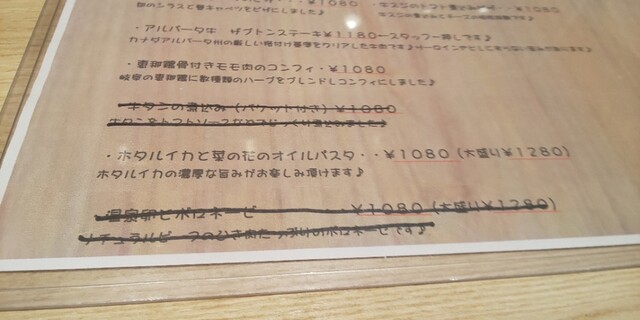 旬のシラスと春キャベツをピザにしました♪
・アルバータ牛 ザブトンステーキ¥1180ースタッフ一押しです♪
カナダアルバータ州の厳しい格付け基準をクリアした牛肉です♪
・恵那鶏骨付きモモ肉のコンフィ・¥1080
岐阜の恵那鶏に数種類のハーブをブレンドしコンフィにしました♪
牛タンの煮込み(バケット付き)¥1080
牛タンをトマトソースで
・ホタルイカと菜の花のオイルパスタ・・¥1080(大盛り¥1280)
ホタルイカの濃厚な旨みがお楽しみ頂けます♪
・温泉卵とボロネーゼ ¥1080(大盛り¥1280)
ナチュラルビーフのひき肉たっぷりのボロネーゼです♪